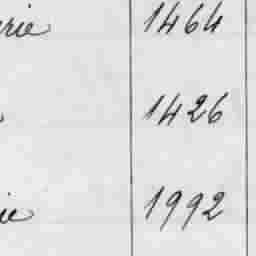 rie 1464
1426
ie 1992